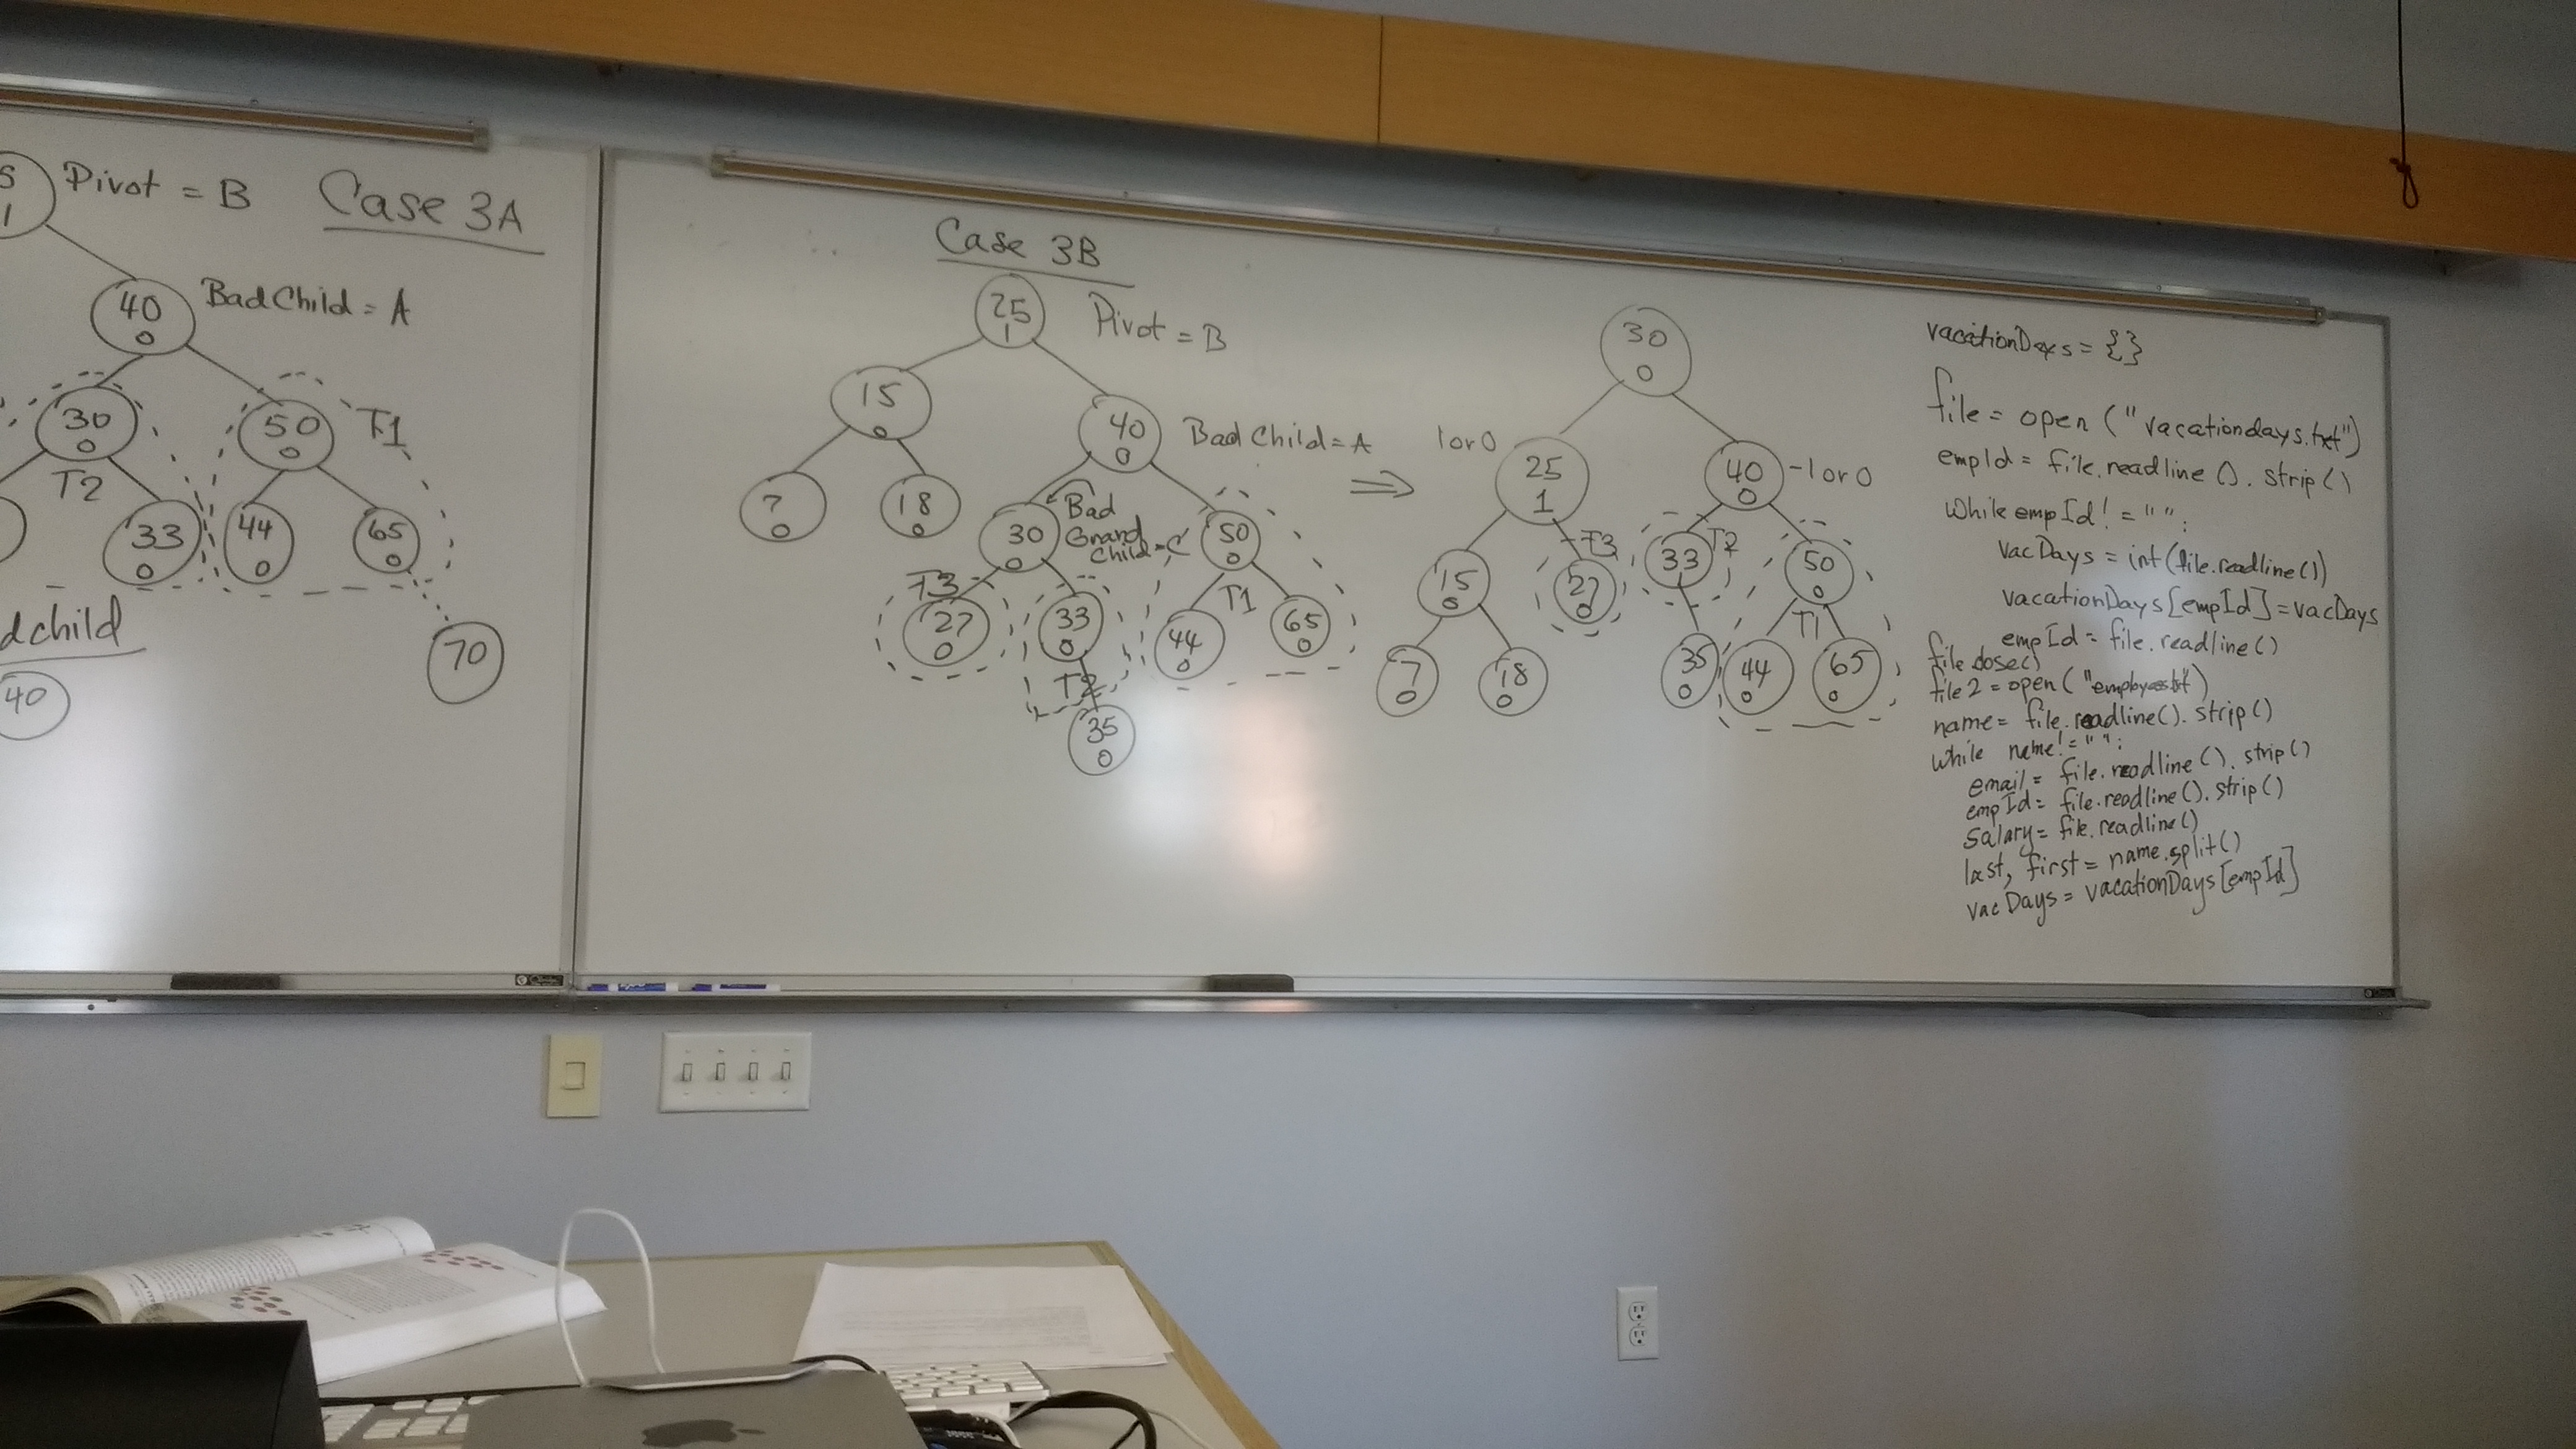 Pivot = B
Case 3A
1
40
0
Bad Child = A
30
0
50
0
T1
T2
33
0
44
0
65
0
70
dchild
40
Case 3B
25
1
Pivot = B
15
0
40
0
Bad Child = A
7
0
18
0
30
0
Bad
Grand
Child = C
50
0
T3
27
0
33
0
T2
35
0
T1
44
0
65
0
⇒
30
0
1 or 0
25
1
40
0
-1 or 0
15
0
T3
27
0
33
0
T2
50
0
T1
7
0
18
0
35
0
44
0
65
0
vacationDays = {}
file = open ("vacationdays.txt")
empId = file.readline().strip()
While empId! = "":
vacDays = int(file.readline())
vacationDays[empId] = vacDays
empId = file.readline()
file.close()
file2 = open("
name = file.readline().strip()
While name! = "":
email = file.readline().strip()
empId = file.readline().strip()
Salary = file.readline()
last, first = name.split()
vacDays = vacationDays[empId]